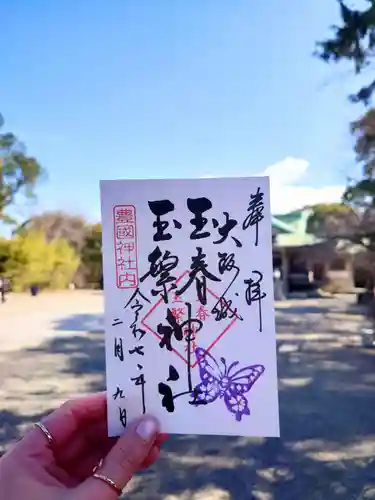 奉拝
大阪城
玉春
玉繁
神社
豊國神社内
令和七年
二月九日